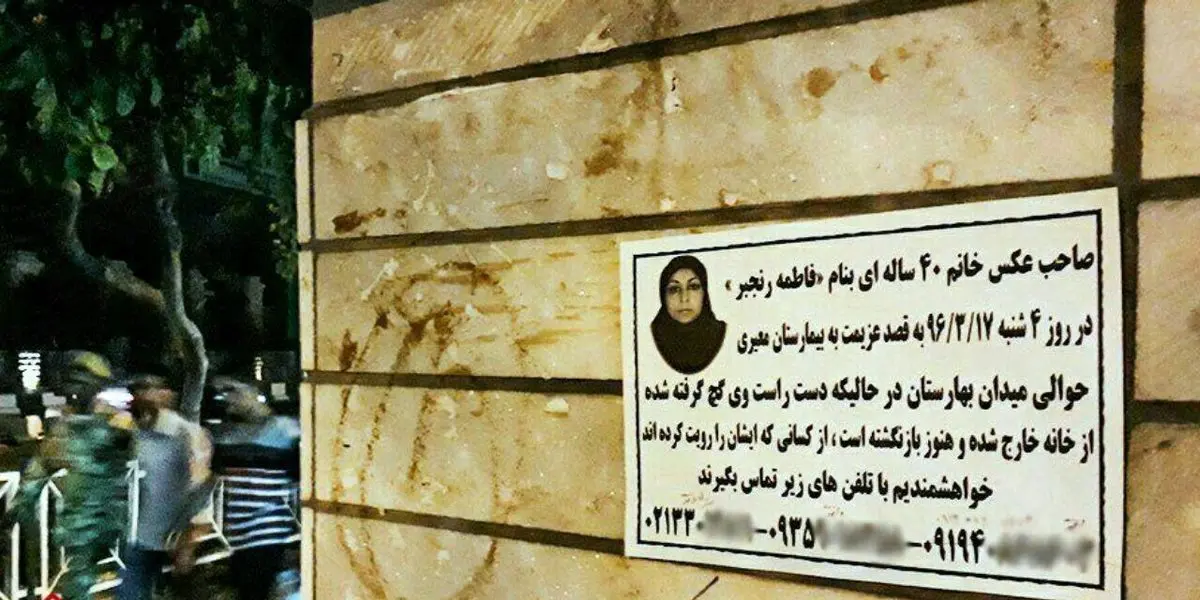 صاحب عکس خانم ۴۰ ساله ای بنام «فاطمه رنجبر»
در روز ۴ شنبه ۹۶/۳/۱۷ به قصد عزیمت به بیمارستان معیری
حوالی میدان بهارستان در حالیکه دست راست وی گچ گرفته شده
از خانه خارج شده و هنوز بازنگشته است، از کسانی که ایشان را رویت کرده اند
خواهشمندیم با تلفن های زیر تماس بگیرند
۰۲۱۳۳ -۰۹۳۵ -۰۹۱۹۴